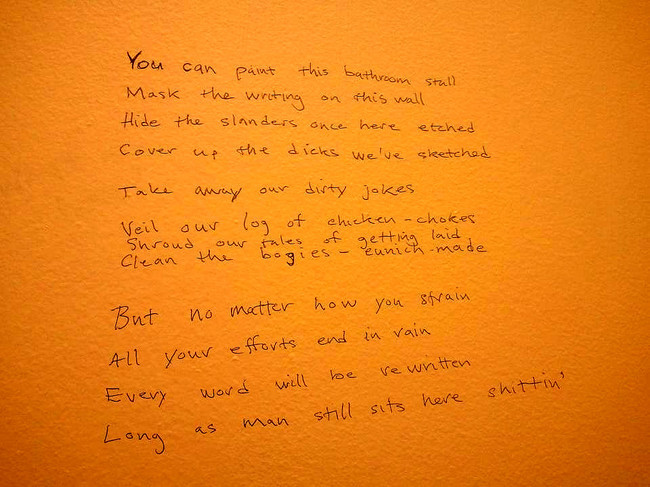 You can paint this bathroom stall
Mask the writing on this wall
Hide the slanders once here etched
Cover up the dicks we've sketched
Take away our dirty jokes
Veil our log of chicken-chokes
Shroud our tales of getting laid
Clean the bogies - eunich-made
But no matter how you strain
All your efforts end in vain
Every word will be rewritten
Long as man still sits here shittin'